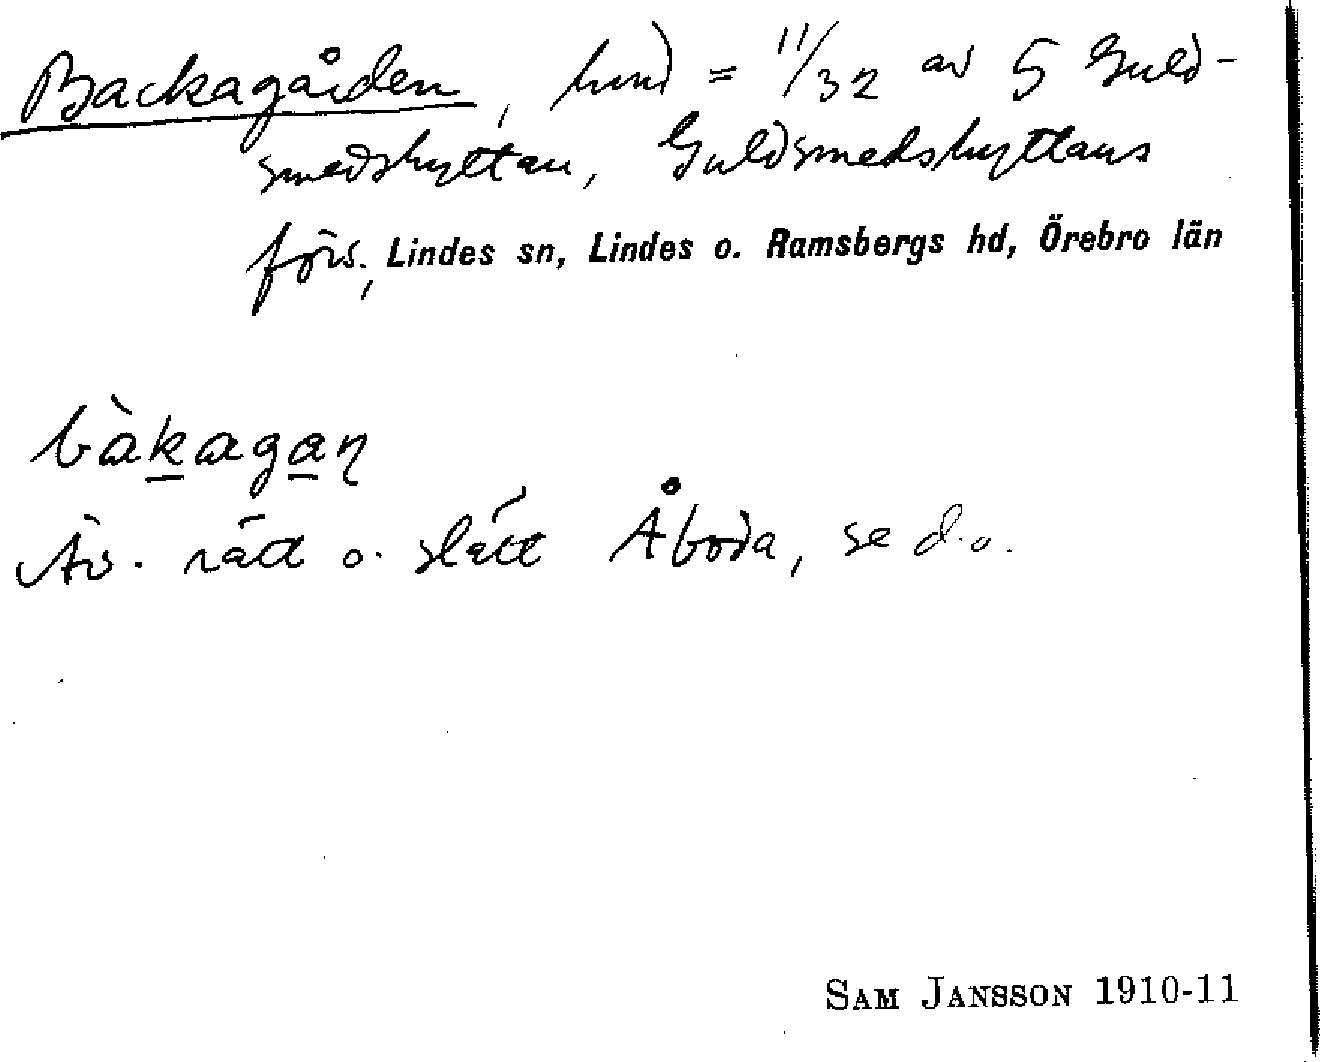 Backagården, hmd = 11/32 av 5 Guld-
smedshyttan, Guldsmedshyttans
förs., Lindes sn, Lindes o. Ramsbergs hd, Örebro län
bàkagaɳ
Äv. rätt o. slätt Åboda, se d.o.
SAM JANSSON 1910-11